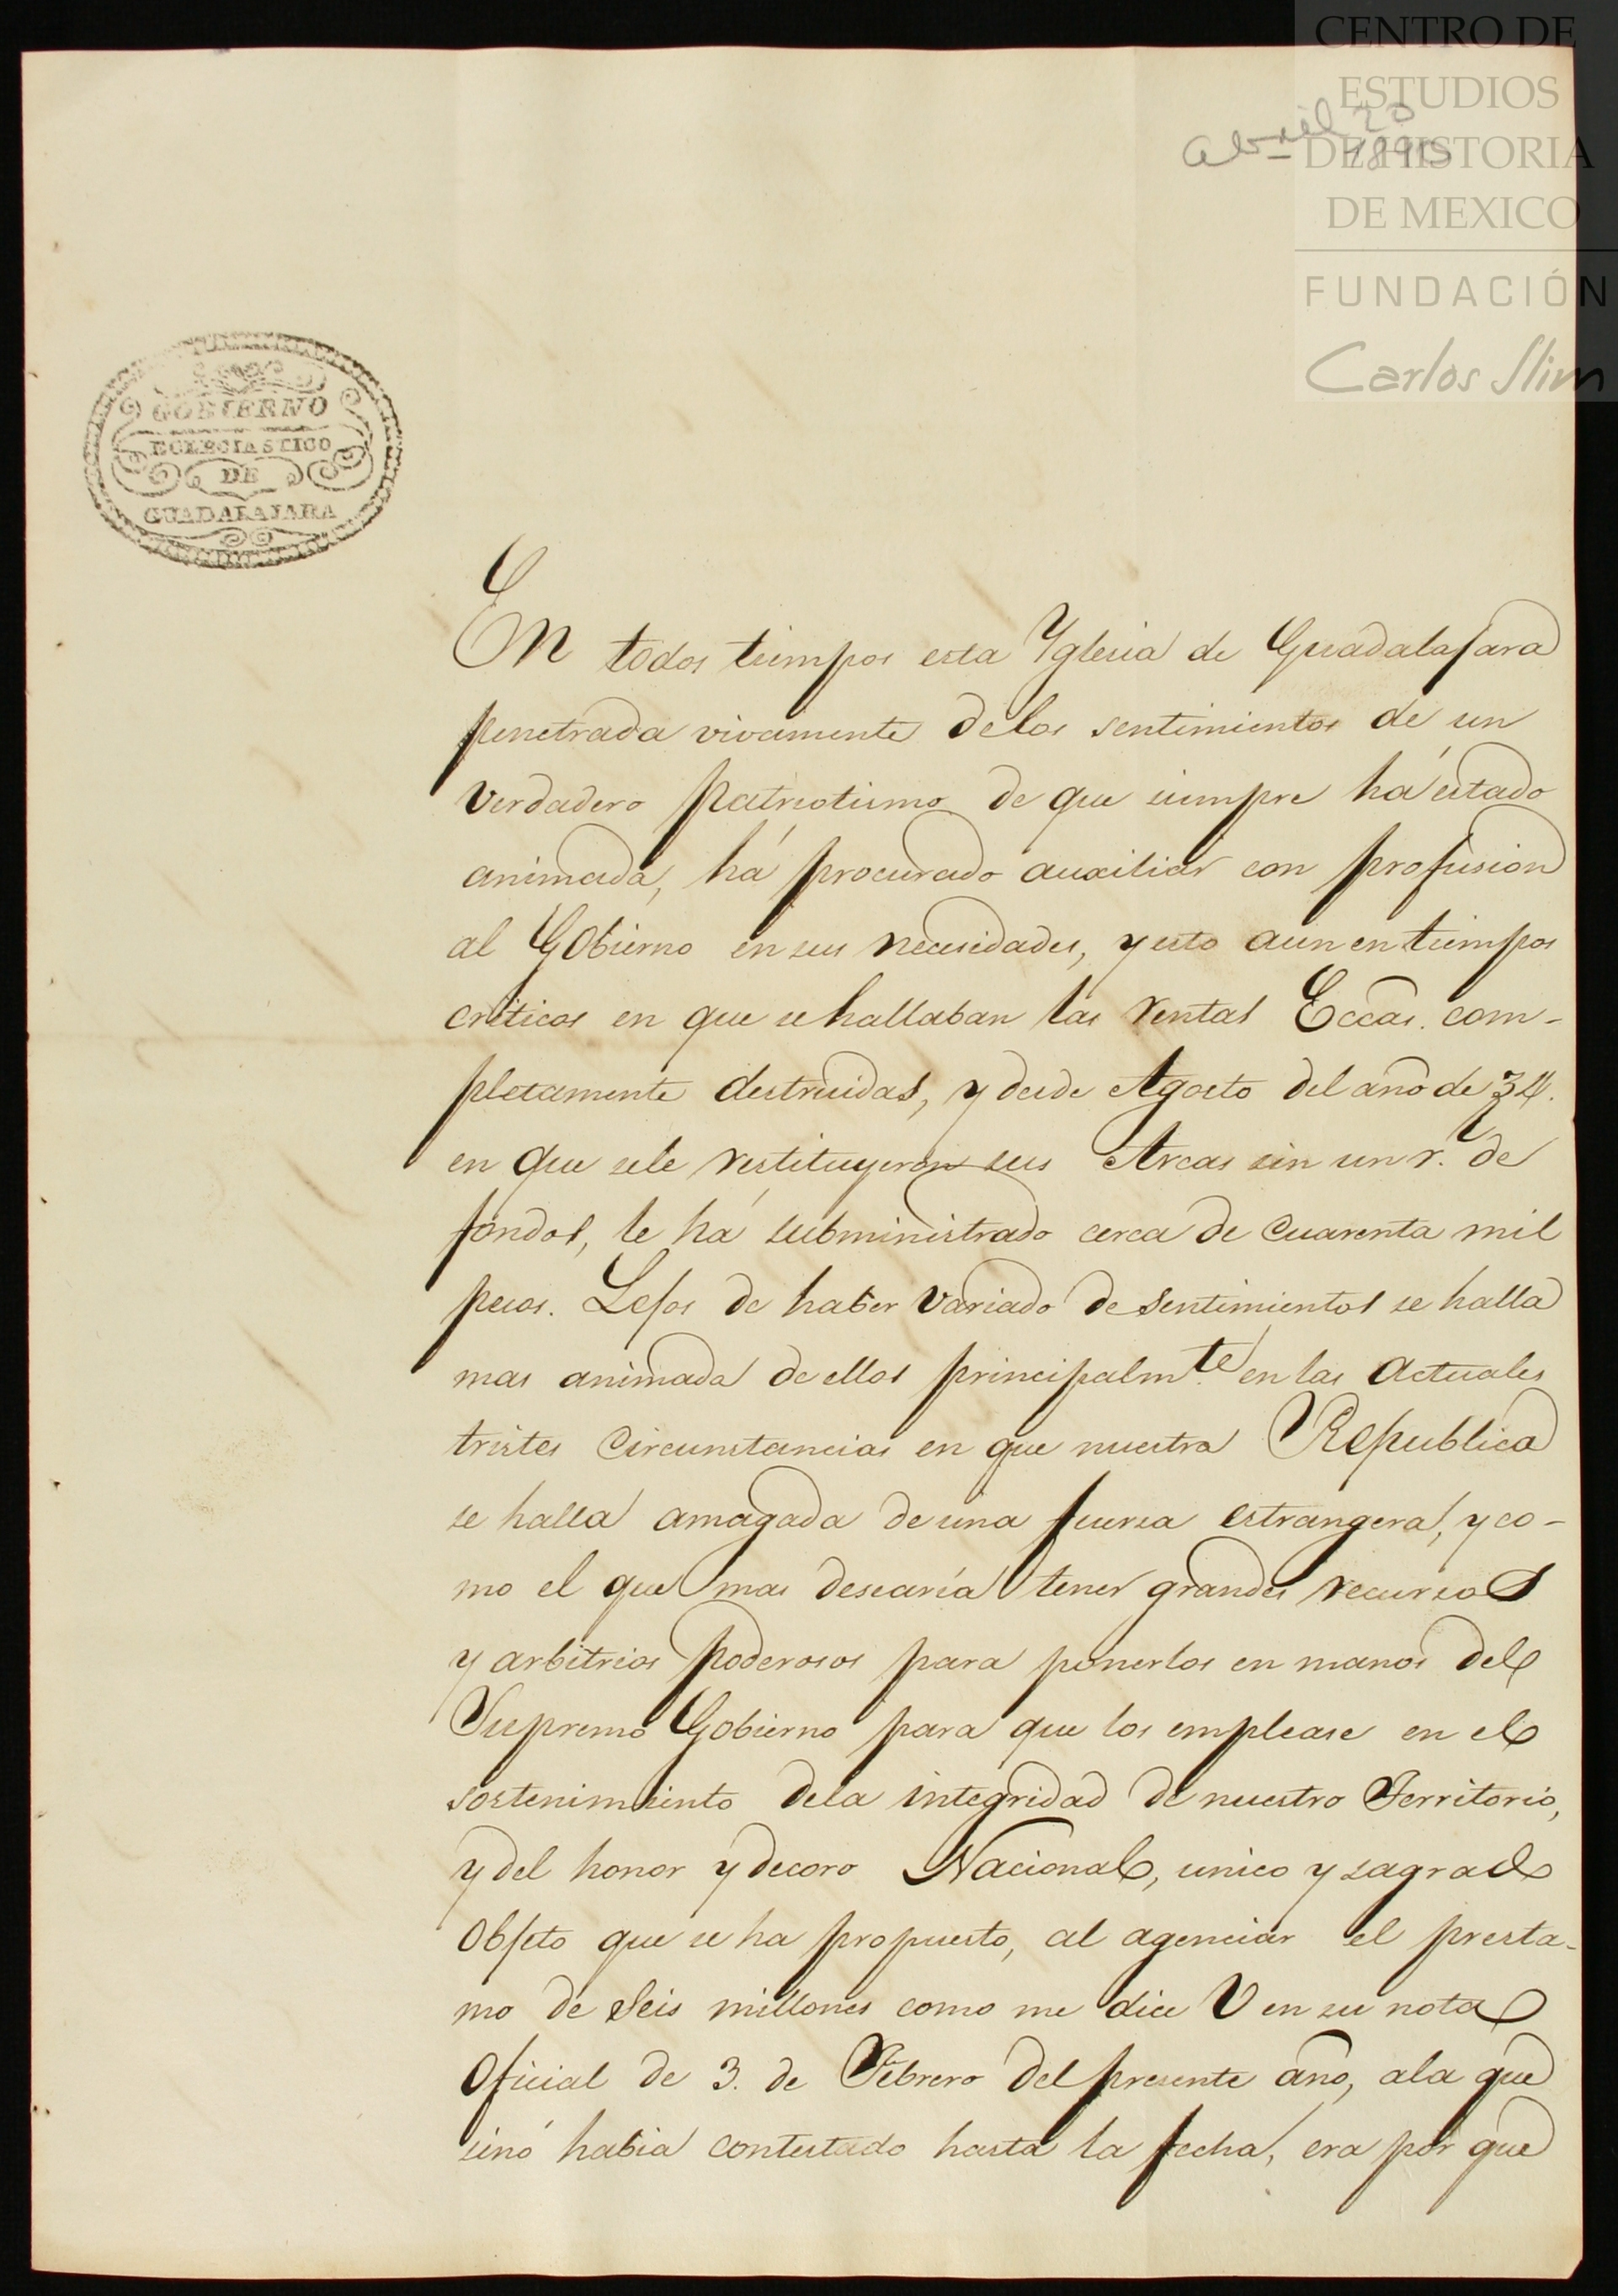 CENTRO DE
ESTUDIOS
DE HISTORIA
DE MEXICO
FUNDACIÓN
Carlos Slim
abril 20
GOBIERNO
ECLECIASTICO
DE
GUADALAJARA
En todos tiempos esta Yglesia de Guadalajara
penetrada vivamente delos sentimientos de un
verdadero patriotismo de que siempre há estado
animada, há procurado auxiliar con profusion
al Gobierno en sus necesidades, y esto aun en tiempos
criticos en que se hallaban las rentas Eccas. com-
pletamente destruidas, y desde Agosto del año de 34.
en que sele restituyeron sus Arcas sin un r. de
fondos, le há subministrado cerca de cuarenta mil
pesos. Lejos de haber variado de sentimientos se halla
mas animada de ellos principalm.te en las actuales
tristes circunstancias en que nuestra Republica
se halla amagada de una fuersa estrangera, y co-
mo el que mas desearía tener grandes recursos
y arbitrios poderosos para ponerlos en manos del
Supremo Gobierno para que los emplease en el
sostenimiento dela integridad de nuestro Territorio,
y del honor y decoro Nacional, unico y sagrado
objeto que se ha propuesto, al agenciar el presta-
mo de seis millones como me dice V en su nota
oficial de 3. de Febrero del presente año, ala que
sinó habia contestado hasta la fecha, era por que